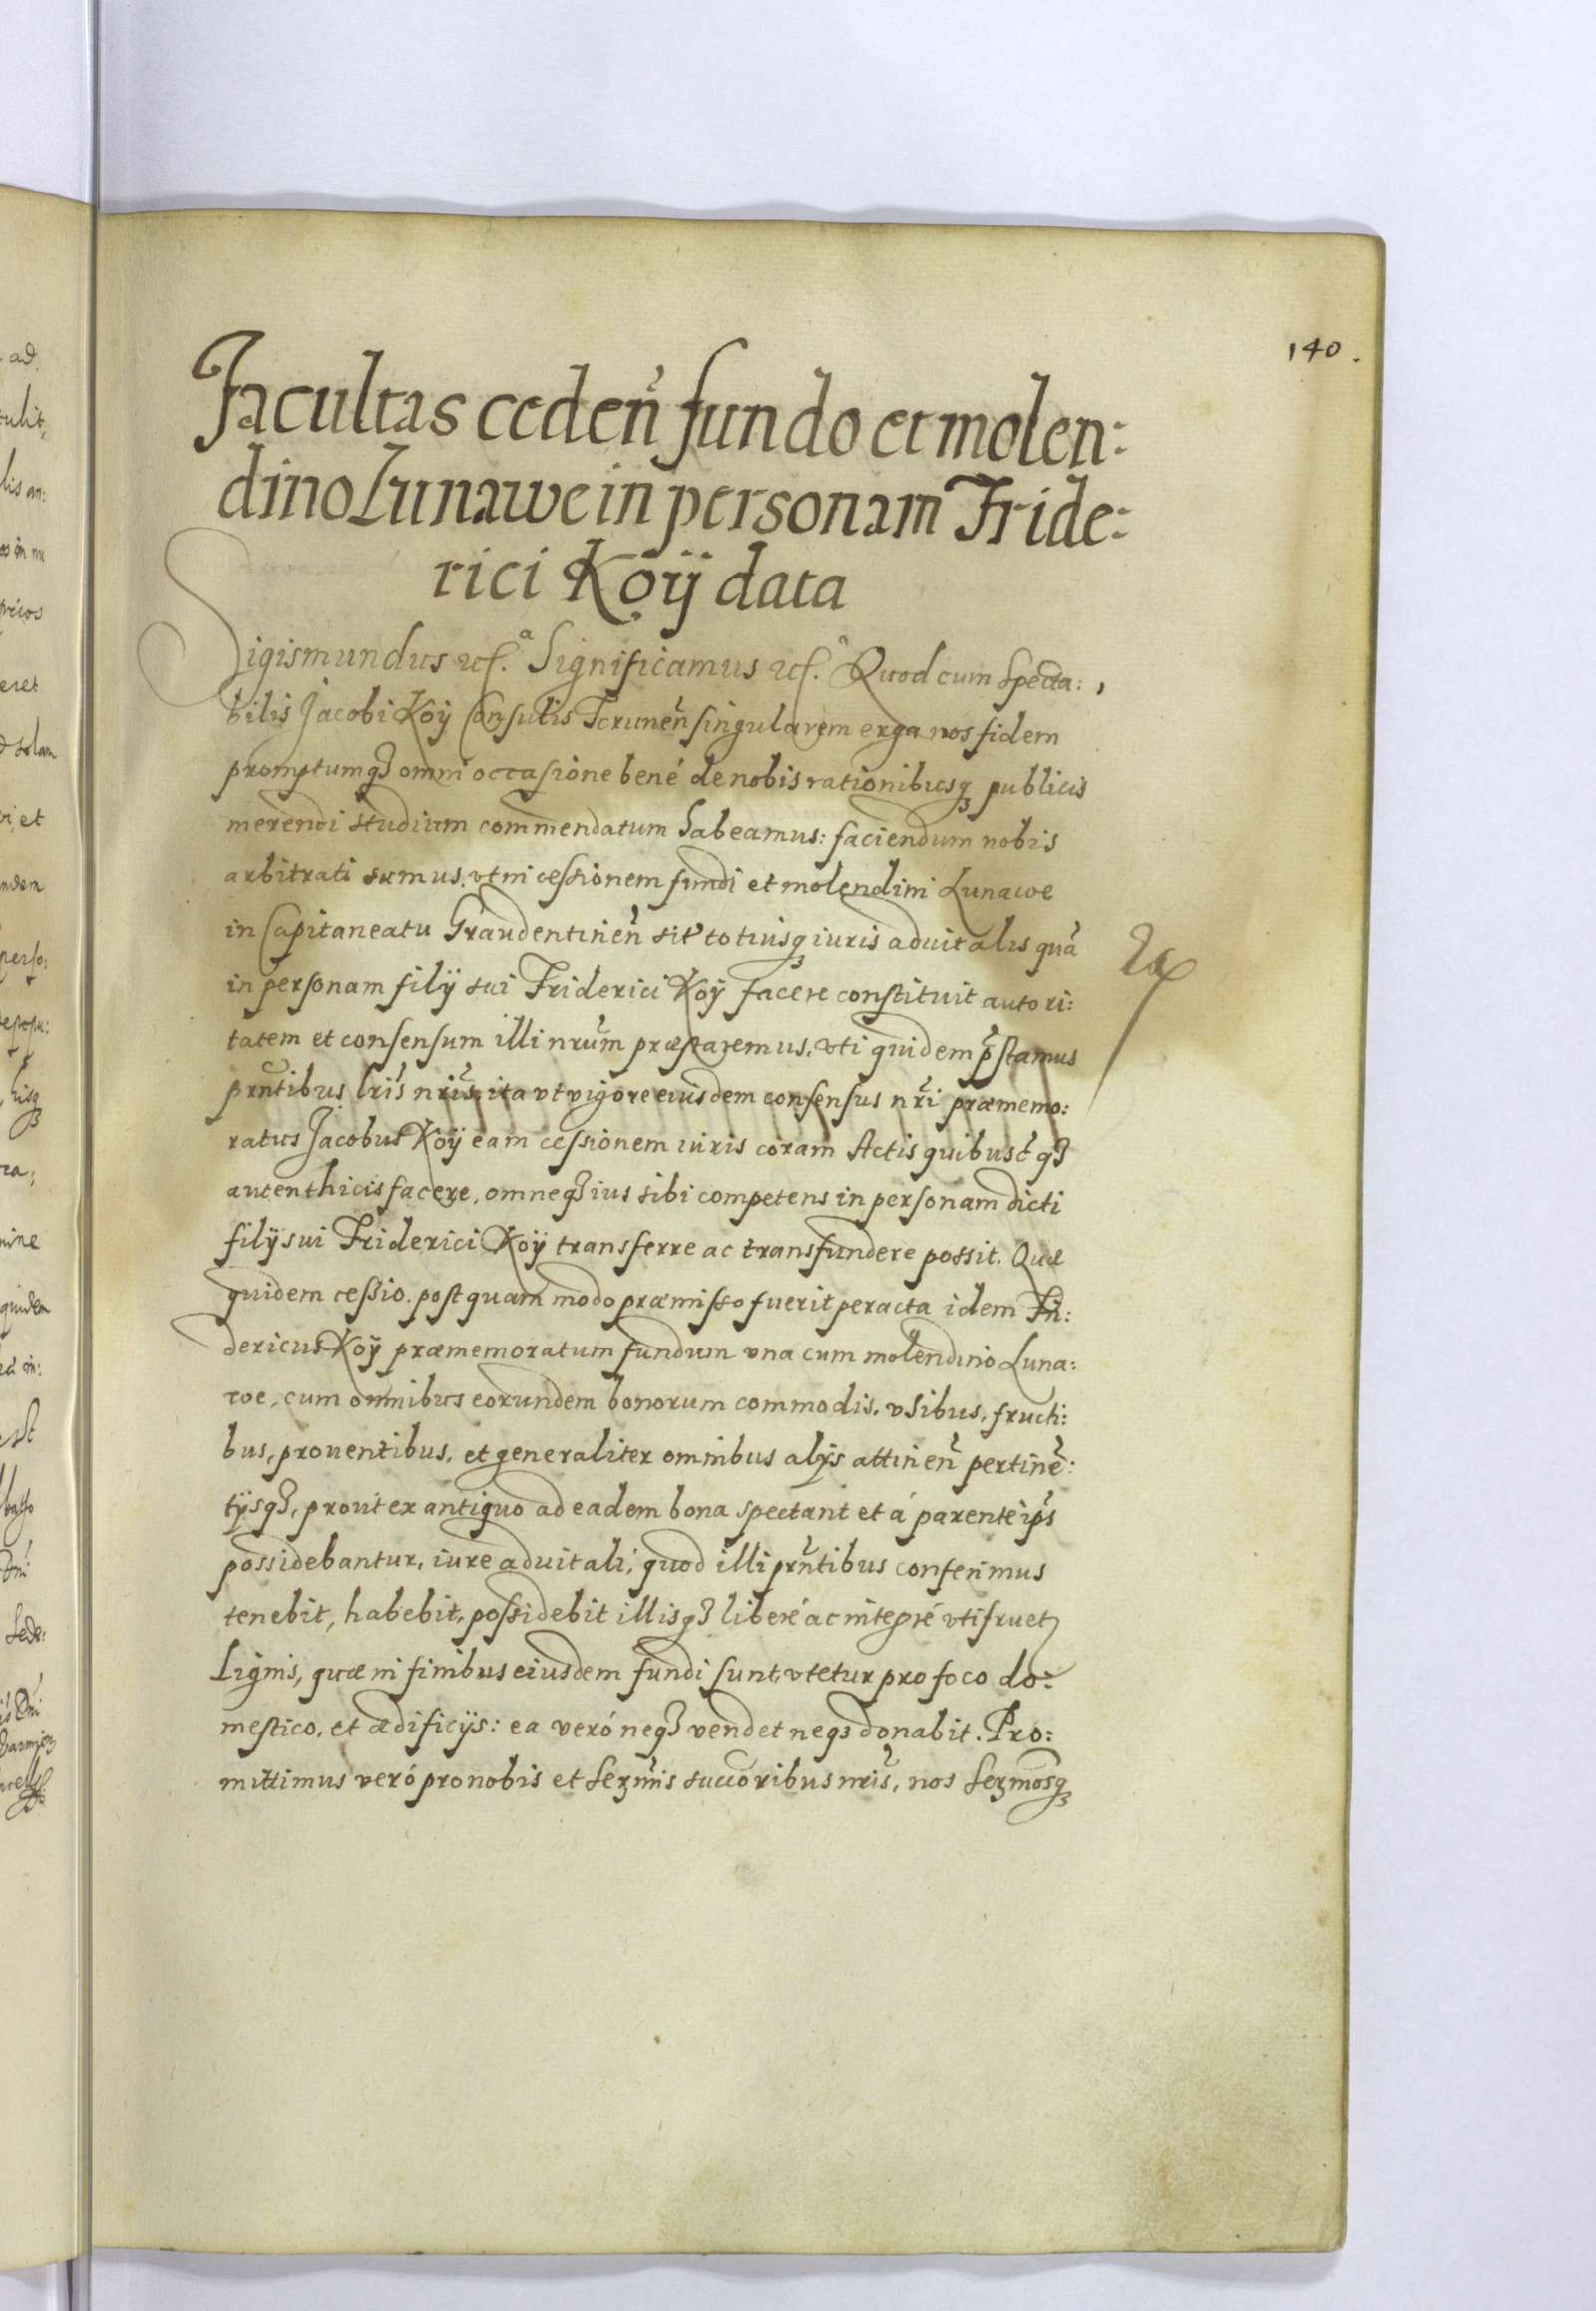 140.
Facultas ceden̄ fundo et molen:
dino Lunawe in personam Fride:
rici Koÿ data
Sigismundus etc.ᵃ Significamus etc.ᵃ Quod cum Specta:
bilis Jacobi Koÿ Consulis Torunen̄ singularem erga nos fidem
promptumq₃ omni occasione bené de nobis rationibusq₃ publicis
merendi studium commendatum habeamus: faciendum nobis
arbitrati sumus, vt in cessionem fundi et molendini Lunawe
in Capitaneatu Graudentinen̄ sit' totiusq₃ iuris aduitalis quā
in personam filÿ sui Friderici Koÿ facere constituit autori:
tatem et consensum illi nrūm præstaremus, vti quidem p̄stamus
prn̄tibus lris̄ nris̄, ita vt vigore eiusdem consensus nr̄i præmemo:
ratus Jacobus Koÿ eam cessionem iuris coram Actis quibusc̄q₃
autenthicis facere, omneq₃ ius sibi competens in personam dicti
filÿ sui Friderici Koÿ transferre ac transfundere possit. Quæ
quidem cessio. postquam modo præmisso fuerit peracta idem Fri:
dericus Koÿ præmemoratum fundum vna cum molendino Luna:
we, cum omnibus eorundem bonorum commodis, vsibus, fructi:
bus, prouentibus, et generaliter omnibus alÿs attinen̄ pertinē:
tÿsq₃, prout ex antiquo ad eadem bona spectant et á parente ip̄s
possidebantur, iure aduitali, quod illi prn̄tibus conferimus
tenebit, habebit, possidebit illisq₃ liberé ac integré vtifruet₂
Lignis, quæ in finibus eiusdem fundi sunt, vtetur pro foco do:
mestico, et ædificÿs: ea veró neq₃ vendet neq₃ donabit. Pro:
mittimus veró pro nobis et Serm̄is succoribus nris̄, nos Sermosq₃